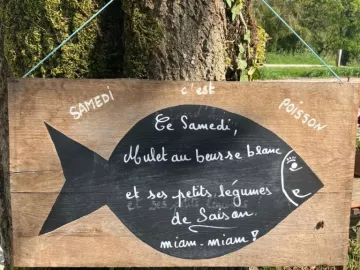 SAMEDI c'est POISSON
Ce Samedi,
Mulet au beurre blanc
et ses petits légumes
de Saison.
miam-miam !